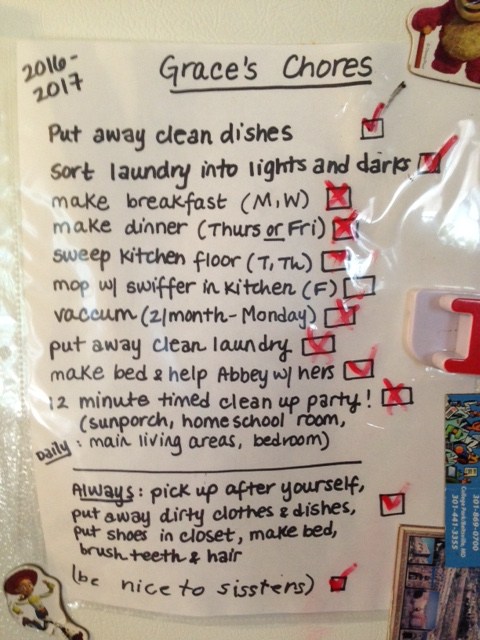 2016-
2017
Grace's Chores
Put away clean dishes
sort laundry into lights and darks
make breakfast (M,W)
make dinner (Thurs or Fri)
sweep kitchen floor (T, Th)
mop w/ swiffer in kitchen (F)
vaccum (2/month - Monday)
put away clean laundry
make bed & help Abbey w/ hers
12 minute timed clean up party!
(sunporch, homeschool room,
Daily: main living areas, bedroom)
Always: pick up after yourself,
put away dirty clothes & dishes,
put shoes in closet, make bed,
brush teeth & hair
(be nice to sissters)
301-441-3355
301-869-0700